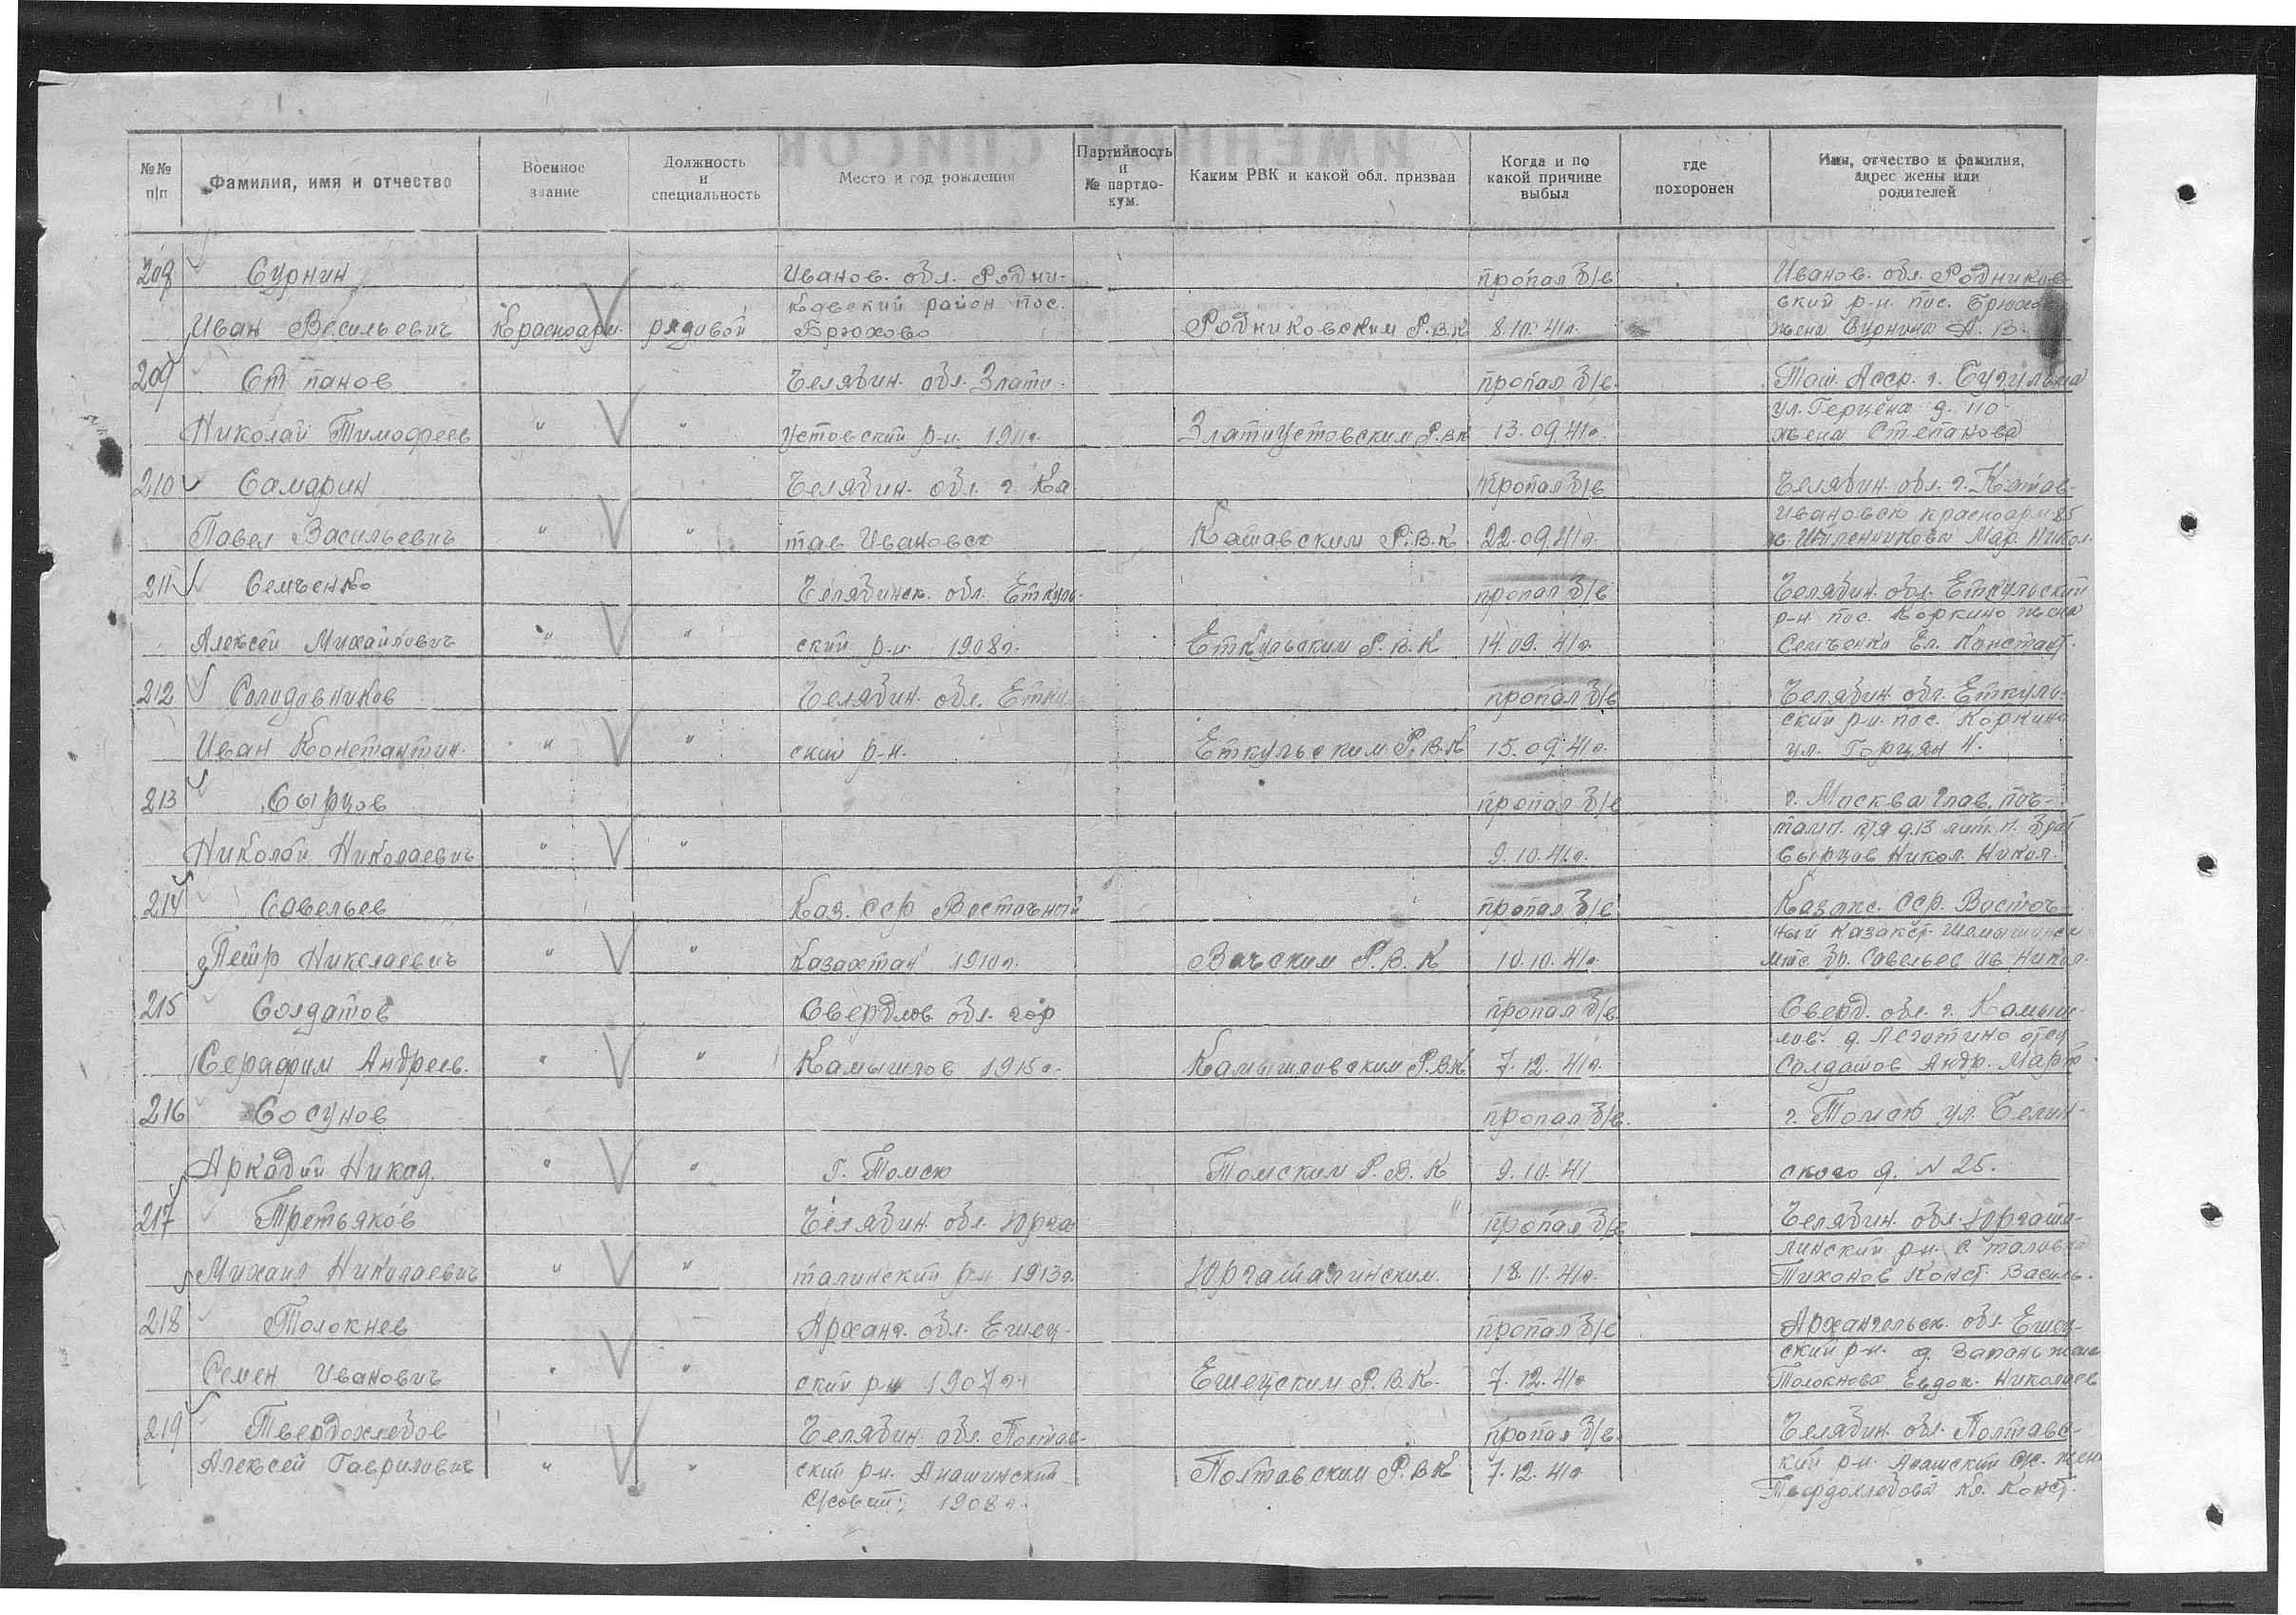 ИМЕННОЙ СПИСОК
№№ п/п
Фамилия, имя и отчество
Военное звание
Должность и специальность
Место и год рождения
Партийность и № партдо-кум.
Каким РВК и какой обл. призван
Когда и по какой причине выбыл
где похоронен
Имя, отчество и фамилия, адрес жены или родителей
208 Сурнин Иванов. обл. Родни- пропал б/в Иванов. обл. Родников-
ковский район пос. ский р-н. пос. Брюхо
Иван Васильевич Красноарм. рядовой Брюхово Родниковским Р.В.К 8.10.41г. жена Сурнина А. В.
209 Ст панов Челябин. обл. Злато- пропал б/в. Асср. г. Бугульма
ул. Герцена д. 110
Николай Тимофеев " " устовский р-н. 1911г. Златоустовским Р.В.К 13.09.41г. жена Степанова
210 Самарин Челябин. обл. г. Ка- пропал б/в Челябин. обл. г. Катав-
Ивановск красноарм 85
Павел Васильевич " " тав Ивановск Катавским Р.В.К 22.09.41г. Мар. Никол.
211 Семченко Челябинск. обл. Еткуль- пропал б/в Челябин. обл. Еткульский
р-н. пос. Коркино жена
Алексей Михайлович " " ский р-н. 1908г. Еткульским Р.В.К 14.09.41г. Семченко Ел. Констант.
212 Солодовников Челябин. обл. Етку пропал б/в Челябин. обл. Еткуль-
ский р-н. пос. Коркино
Иван Константин. " " ский р-н. Еткульским Р.В.К 15.09.41г. ул. 4.
213 Сырцов пропал б/в г. Москва Глав. поч-
тамп. п/я д.13 лит. п. брат
Николай Николаевич " " 9.10.41г. Сырцов Никол. Никол.
214 Савельев Каз. сср Восточный пропал б/в Казахс. сср. Восточ-
ный Казахст.
Петр Николаевич " " Казахстан 1910г. Р.В.К 10.10.41г. мтс. бр. Савельев Ив. Никол.
215 Солдатов Свердлов обл. гор пропал б/в. Сверд. обл. г. Камыш-
лов. д. Леготино отец
Серафим Андреев. " " Камышлов 1915г. Камышловским Р.В.К 7.12.41г. Солдатов Андр. Март
216 Сосунов пропал б/в. г. Томск ул. Белин-
Аркадий Никад. " " г. Томск Томским Р.В.К 9.10.41 ского д. № 25.
217 Третьяков Челябин. обл. Юрга " пропал б/в Челябин. обл. Юргата-
линский р-н.
Михаил Николаевич " " талинский р-н 1913г. Юргаталинским. 18.11.41г. Тихонов Конст. Василь.
218 Толокнев Арханг. обл. Емец- пропал б/в Архангельск. обл. Емец-
ский р-н. д. Запань жена
Семен Иванович " " ский р-н 1907г. Емецским Р.В.К. 7.12.41г Толокнова Евдок. Николаев
219 Твердохлебов Челябин. обл. Полтав- пропал б/в. Челябин. обл. Полтавс-
кий р-н. с/с. жен
Алексей Гаврилович " " ский р-н. Анашинский Полтавским Р.В.К 7.12.41г
с/совет. 1908г. Твердохлебова Кл. Конст.